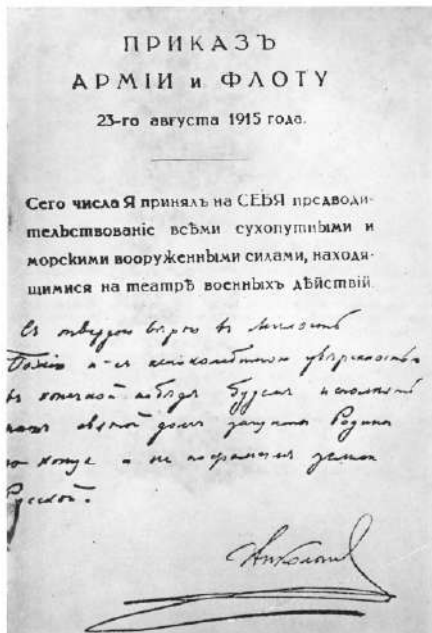 ПРИКАЗЪ
АРМІИ и ФЛОТУ
23-го августа 1915 года.
Сего числа Я принялъ на СЕБЯ предводи-
тельствованіе всѣми сухопутными и
морскими вооруженными силами, находя-
щимися на театрѣ военныхъ дѣйствій.
Съ твердою вѣрою въ милость
Божію и съ непоколебимою увѣренностью
въ конечной побѣдѣ будемъ исполнять
нашъ святой долгъ защиты Родины
до конца и не посрамимъ земли
Русской.
Николай